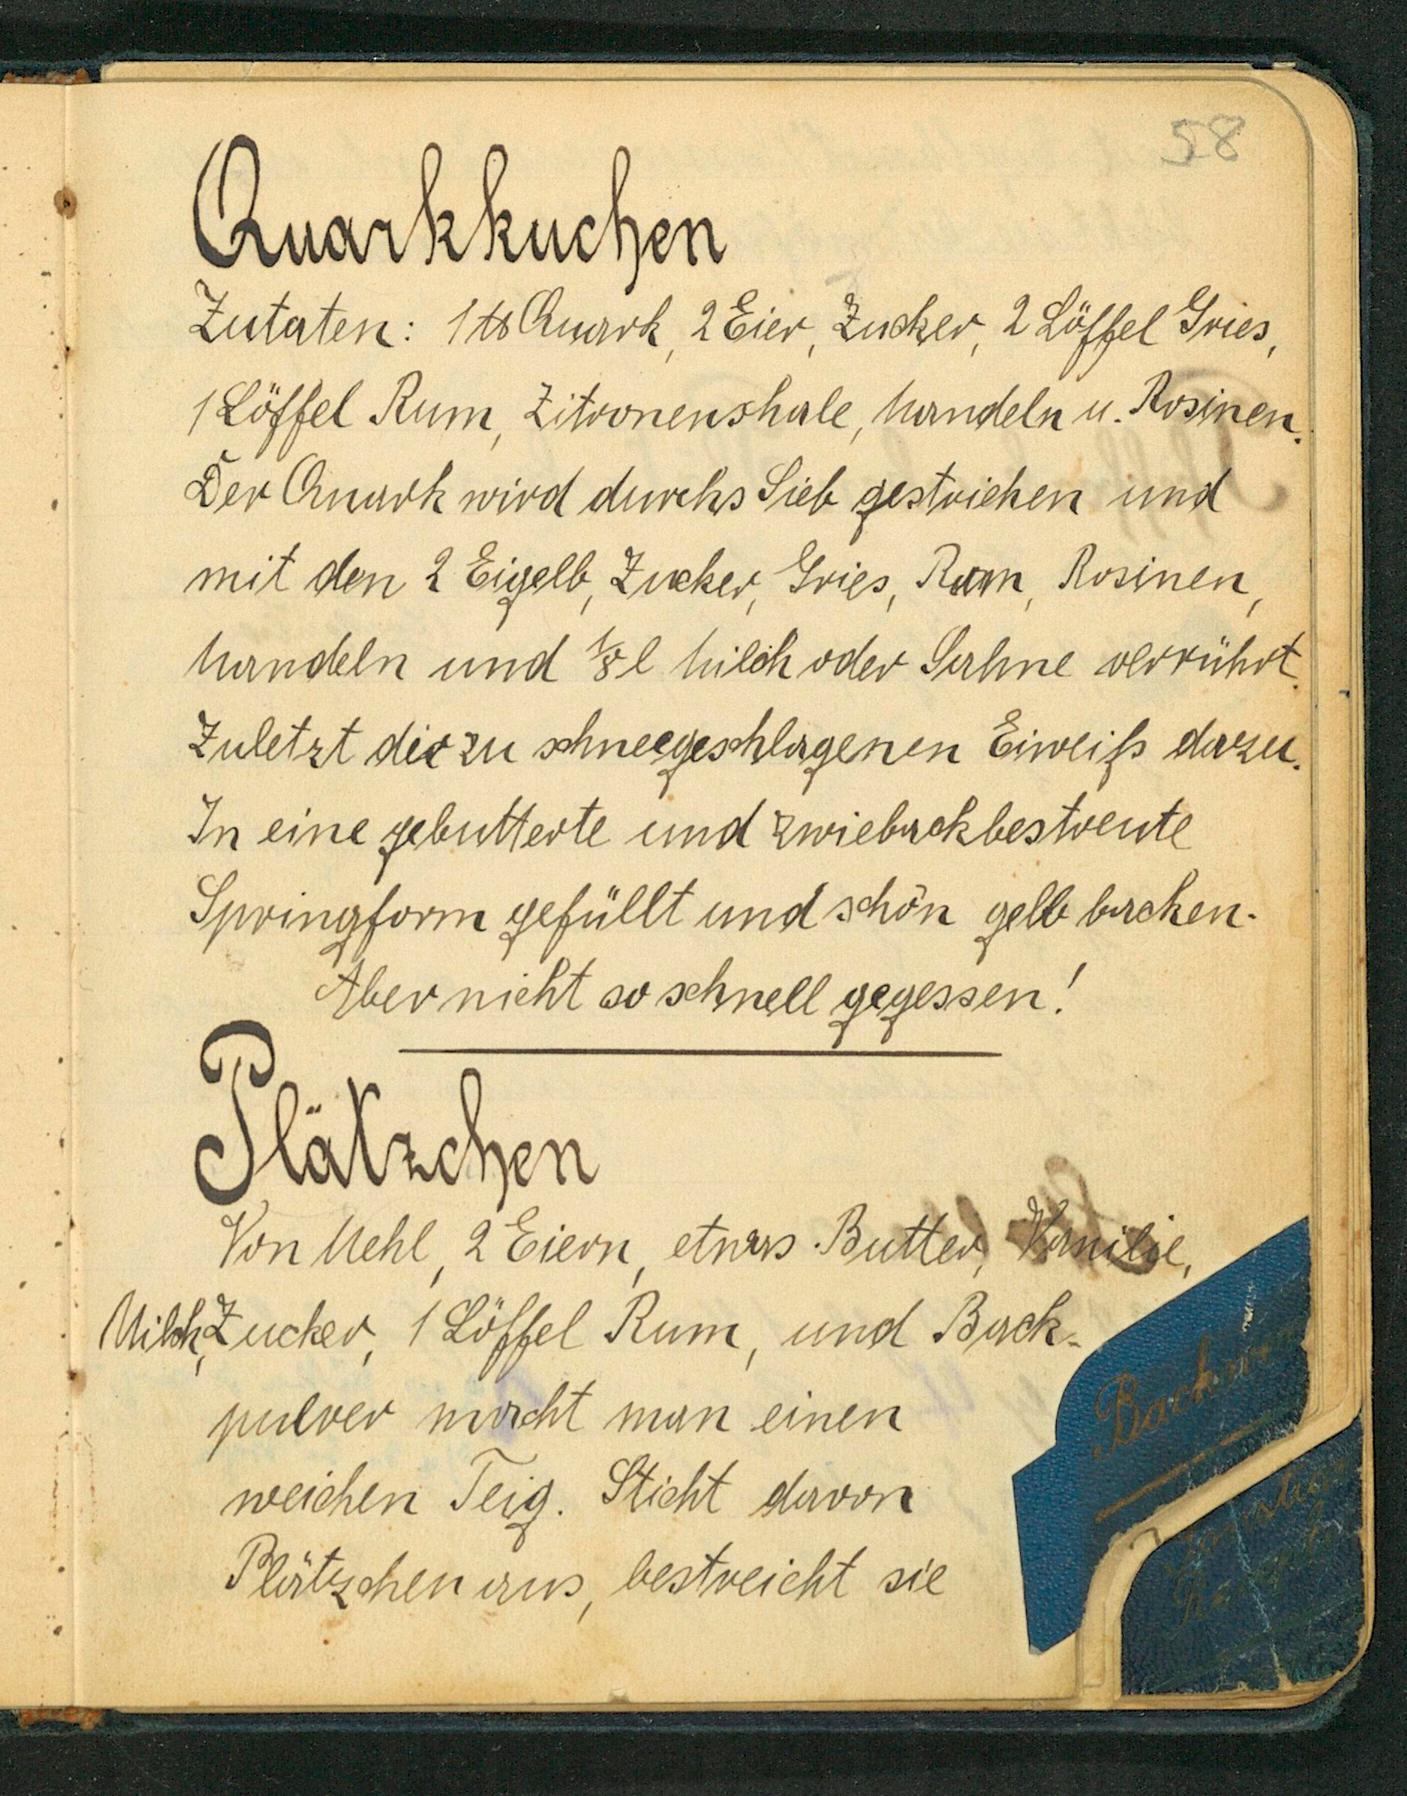 58
Quarkkuchen
Zutaten: 1 ℔ Quark, 2 Eier, Zucker, 2 Löffel Gries,
1 Löffel Rum, Zitronenshale, Mandeln u. Rosinen.
Der Quark wird durchs Sieb gestrichen und
mit den 2 Eigelb, Zucker, Gries, Rum, Rosinen,
Mandeln und 1/8 l Milch oder Sahne verrührt.
Zuletzt die zu schneegeschlagenen Eiweiß dazu.
In eine gebutterte und zwiebackbestreute
Springform gefüllt und schön gelb backen.
Aber nicht so schnell gegessen!
Plätzchen
Von Mehl, 2 Eiern, etwas Butter, Vanilie,
Milch, Zucker, 1 Löffel Rum, und Back-
pulver macht man einen
weichen Teig. Sticht davon
Plätzchen aus, bestreicht sie